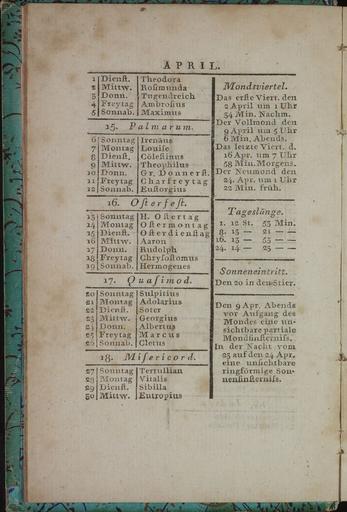 APRIL.
1 Dienſt. Theodora
2 Mittw. Roſimunda
3 Donn. Tugendreich
4 Freytag Ambroſius
5 Sonnab. Maximus
15. Palmarum.
6 Sonntag Irenäus
7 Montag Louiſe
8 Dienſt. Cöleſtinus
9 Mittw. Theophilus
10 Donn. Gr. Donnerſt.
11 Freytag Charfreytag
12 Sonnab. Euſtorgius
16. Oſterfeſt.
13 Sonntag H. Oſtertag
14 Montag Oſtermontag
15 Dienſt. Oſterdienſtag
16 Mittw. Aaron
17 Donn. Rudolph
18 Freytag Chryſoſtomus
19 Sonnab. Hermogenes
17. Quaſimod.
20 Sonntag Sulpitius
21 Montag Adolarius
22 Dienſt. Soter
23 Mittw. Georgius
24 Donn. Albertus
25 Freytag Marcus
26 Sonnab. Cletus
18. Miſericord.
27 Sonntag Tertullian
28 Montag Vitalis
29 Dienſt. Sibilla
30 Mittw. Eutropius
Mondsviertel.
Das erſte Viert. den
2 April um 1 Uhr
54 Min. Nachm.
Der Vollmond den
9 April um 5 Uhr
6 Min. Abends.
Das letzte Viert. d.
16 Apr. um 7 Uhr
58 Min. Morgens.
Der Neumond den
24 Apr. um 1 Uhr
22 Min. früh.
Tageslänge.
1. 12 St. 55 Min.
8. 13 — 21 — —
16. 13 — 53 — —
24. 14 — 25 — —
Sonneneintritt.
Den 20 in den Stier.
Den 9 Apr. Abends
vor Aufgang des
Mondes eine un-
ſichtbare partiale
Mondfinſterniſs.
In der Nacht vom
23 auf den 24 Apr.
eine unſichtbare
ringförmige Son-
nenfinſterniſs.